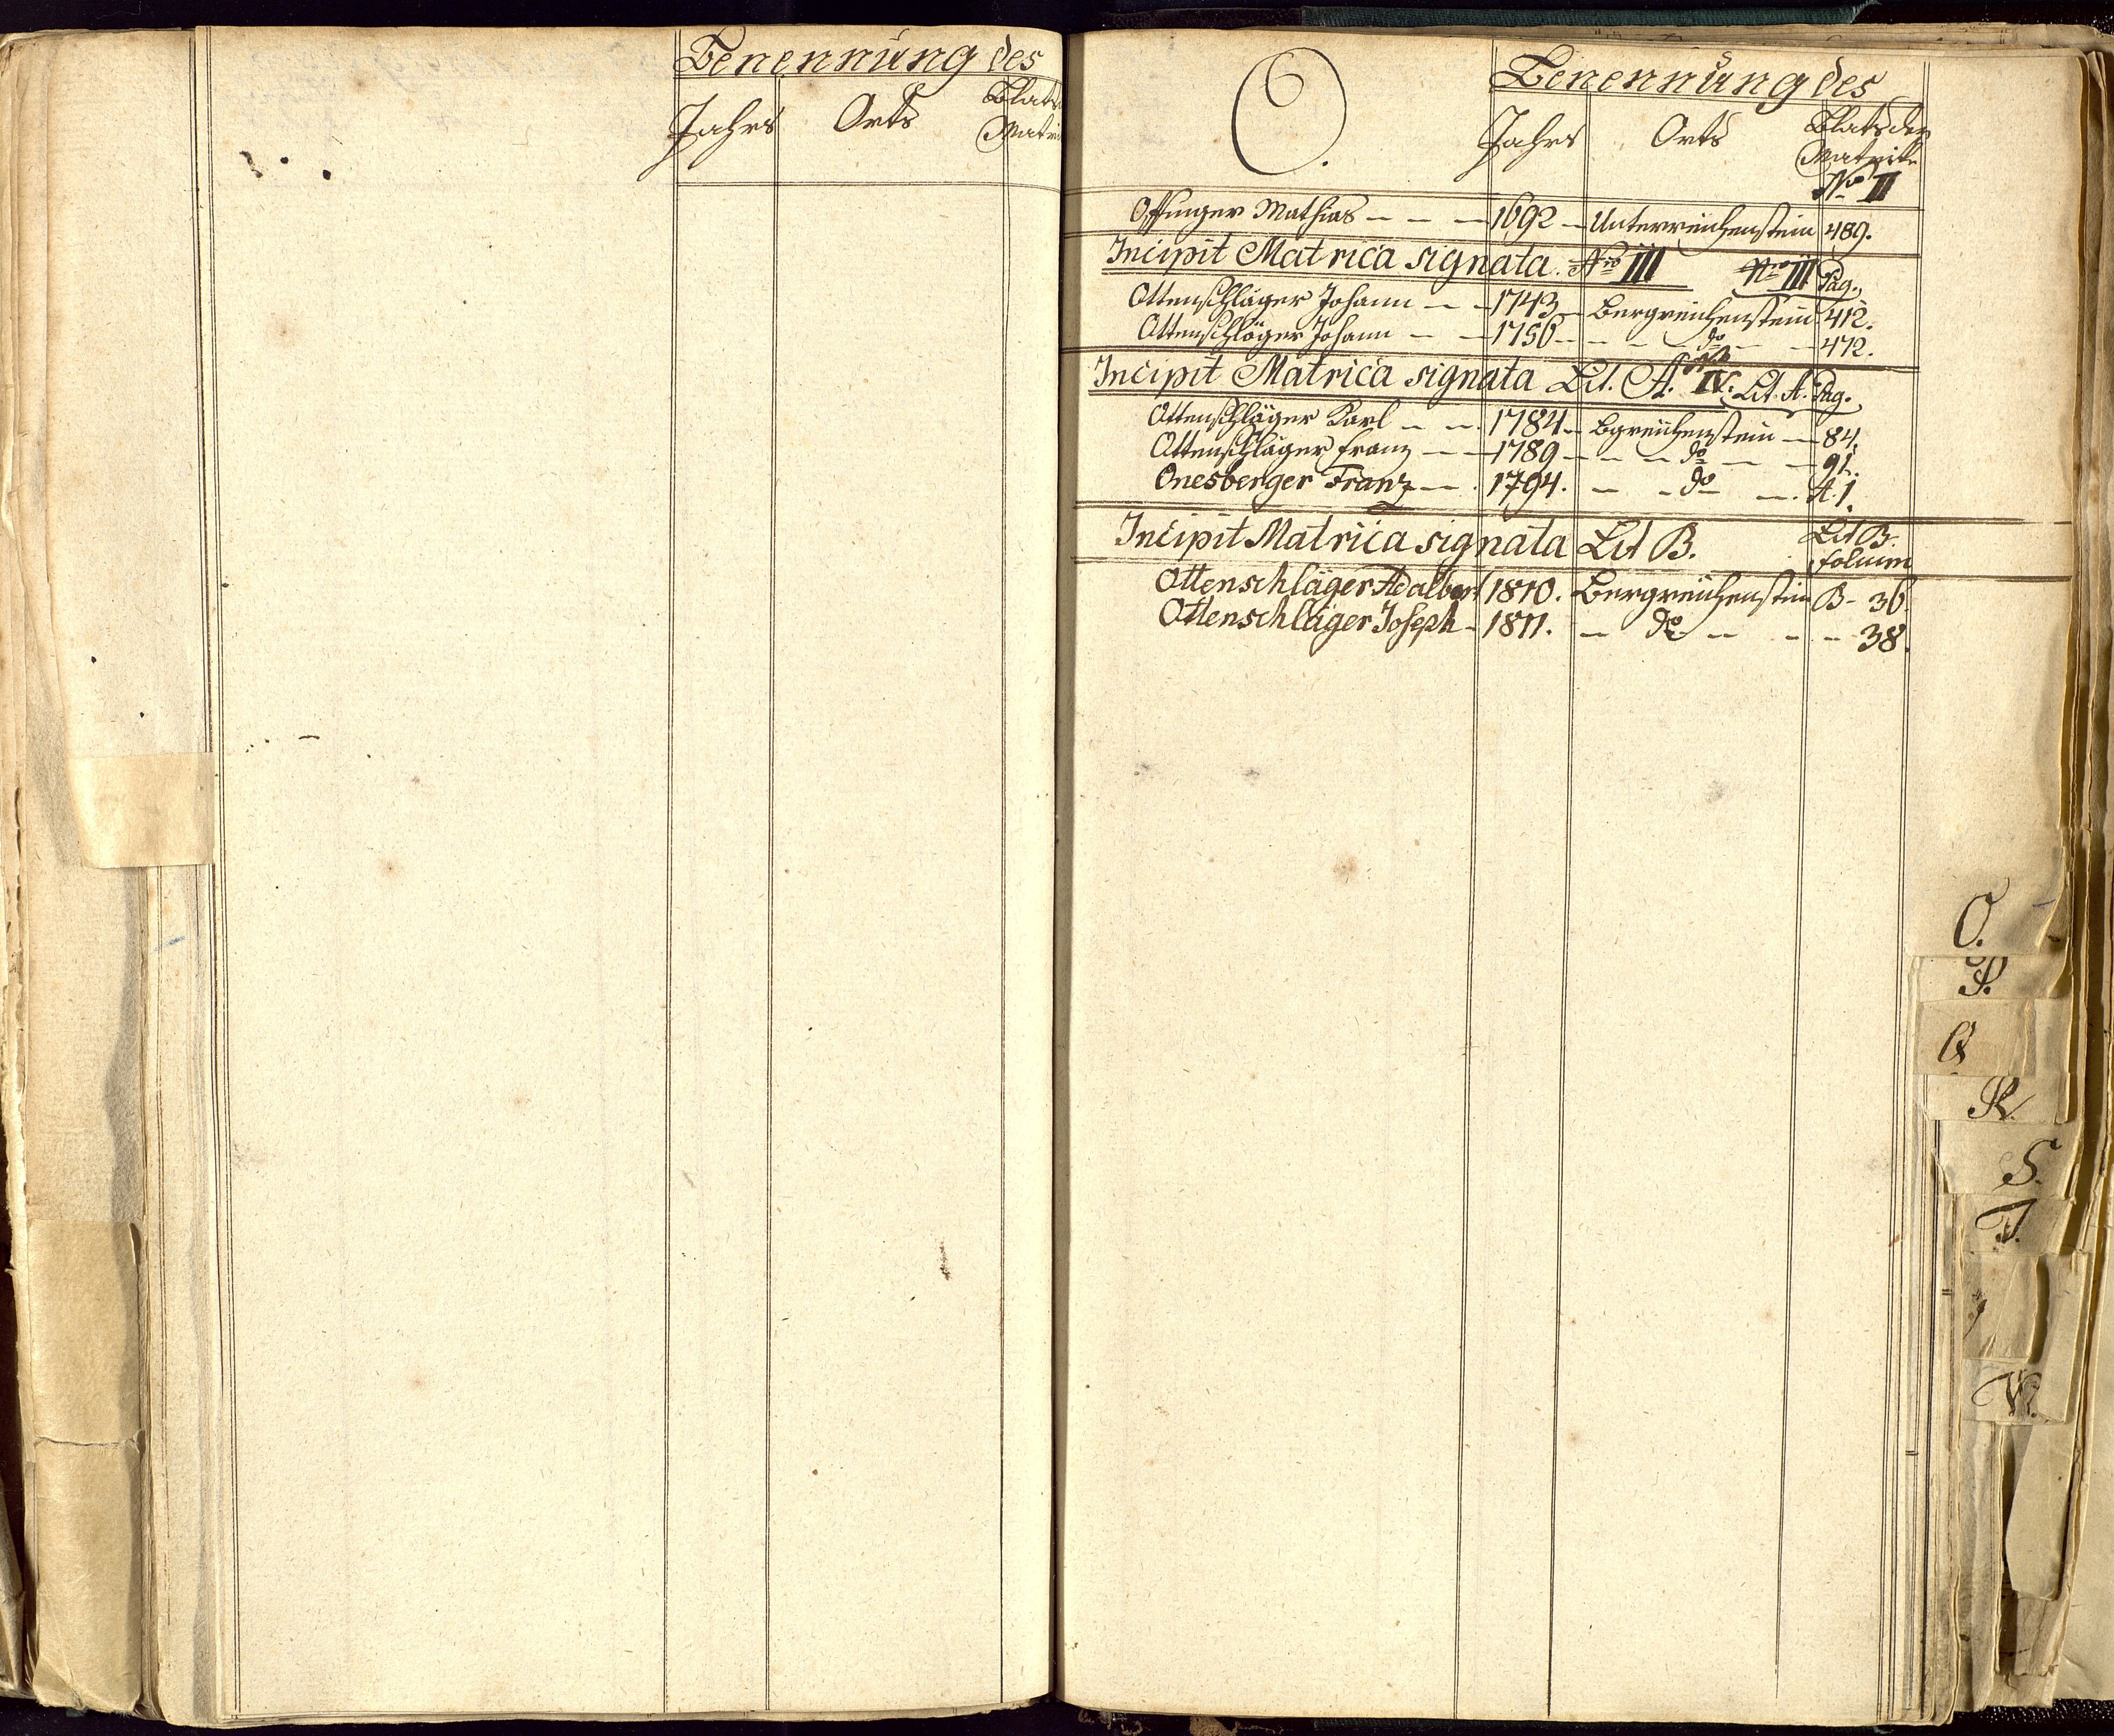 Benennung des
Jahrs Orts Blats
O.
Benennung des
Jahrs Orts Blats der
Matrike
Nro II
Offinger Mathias — — — 1692 — Unterreichenstein 489.
Incipit Matrica signata. Nro III Nro III Pag.
Ottenschläger Johann — — 1743 — Bergreichenstein 412.
Ottenschläger Johann — — 1756 — — — do — — 472.
Incipit Matrica signata Lit. A. Nro IV. Lit. A. Pag.
Ottenschläger Karl — — 1784 — Bgreichenstein — 84.
Ottenschläger Franz — — 1789 — — — do — — 91.
Onesberger Franz — . 1794. — — do — . A. 1.
Incipit Matrica signata Lit B. Lit B.
folium
Ottenschläger Adalbert 1810. Bergreichenstein B - 36.
Ottenschläger Joseph - 1811. — do — - - 38.
O.
P.
Q
R.
S.
T.
W.